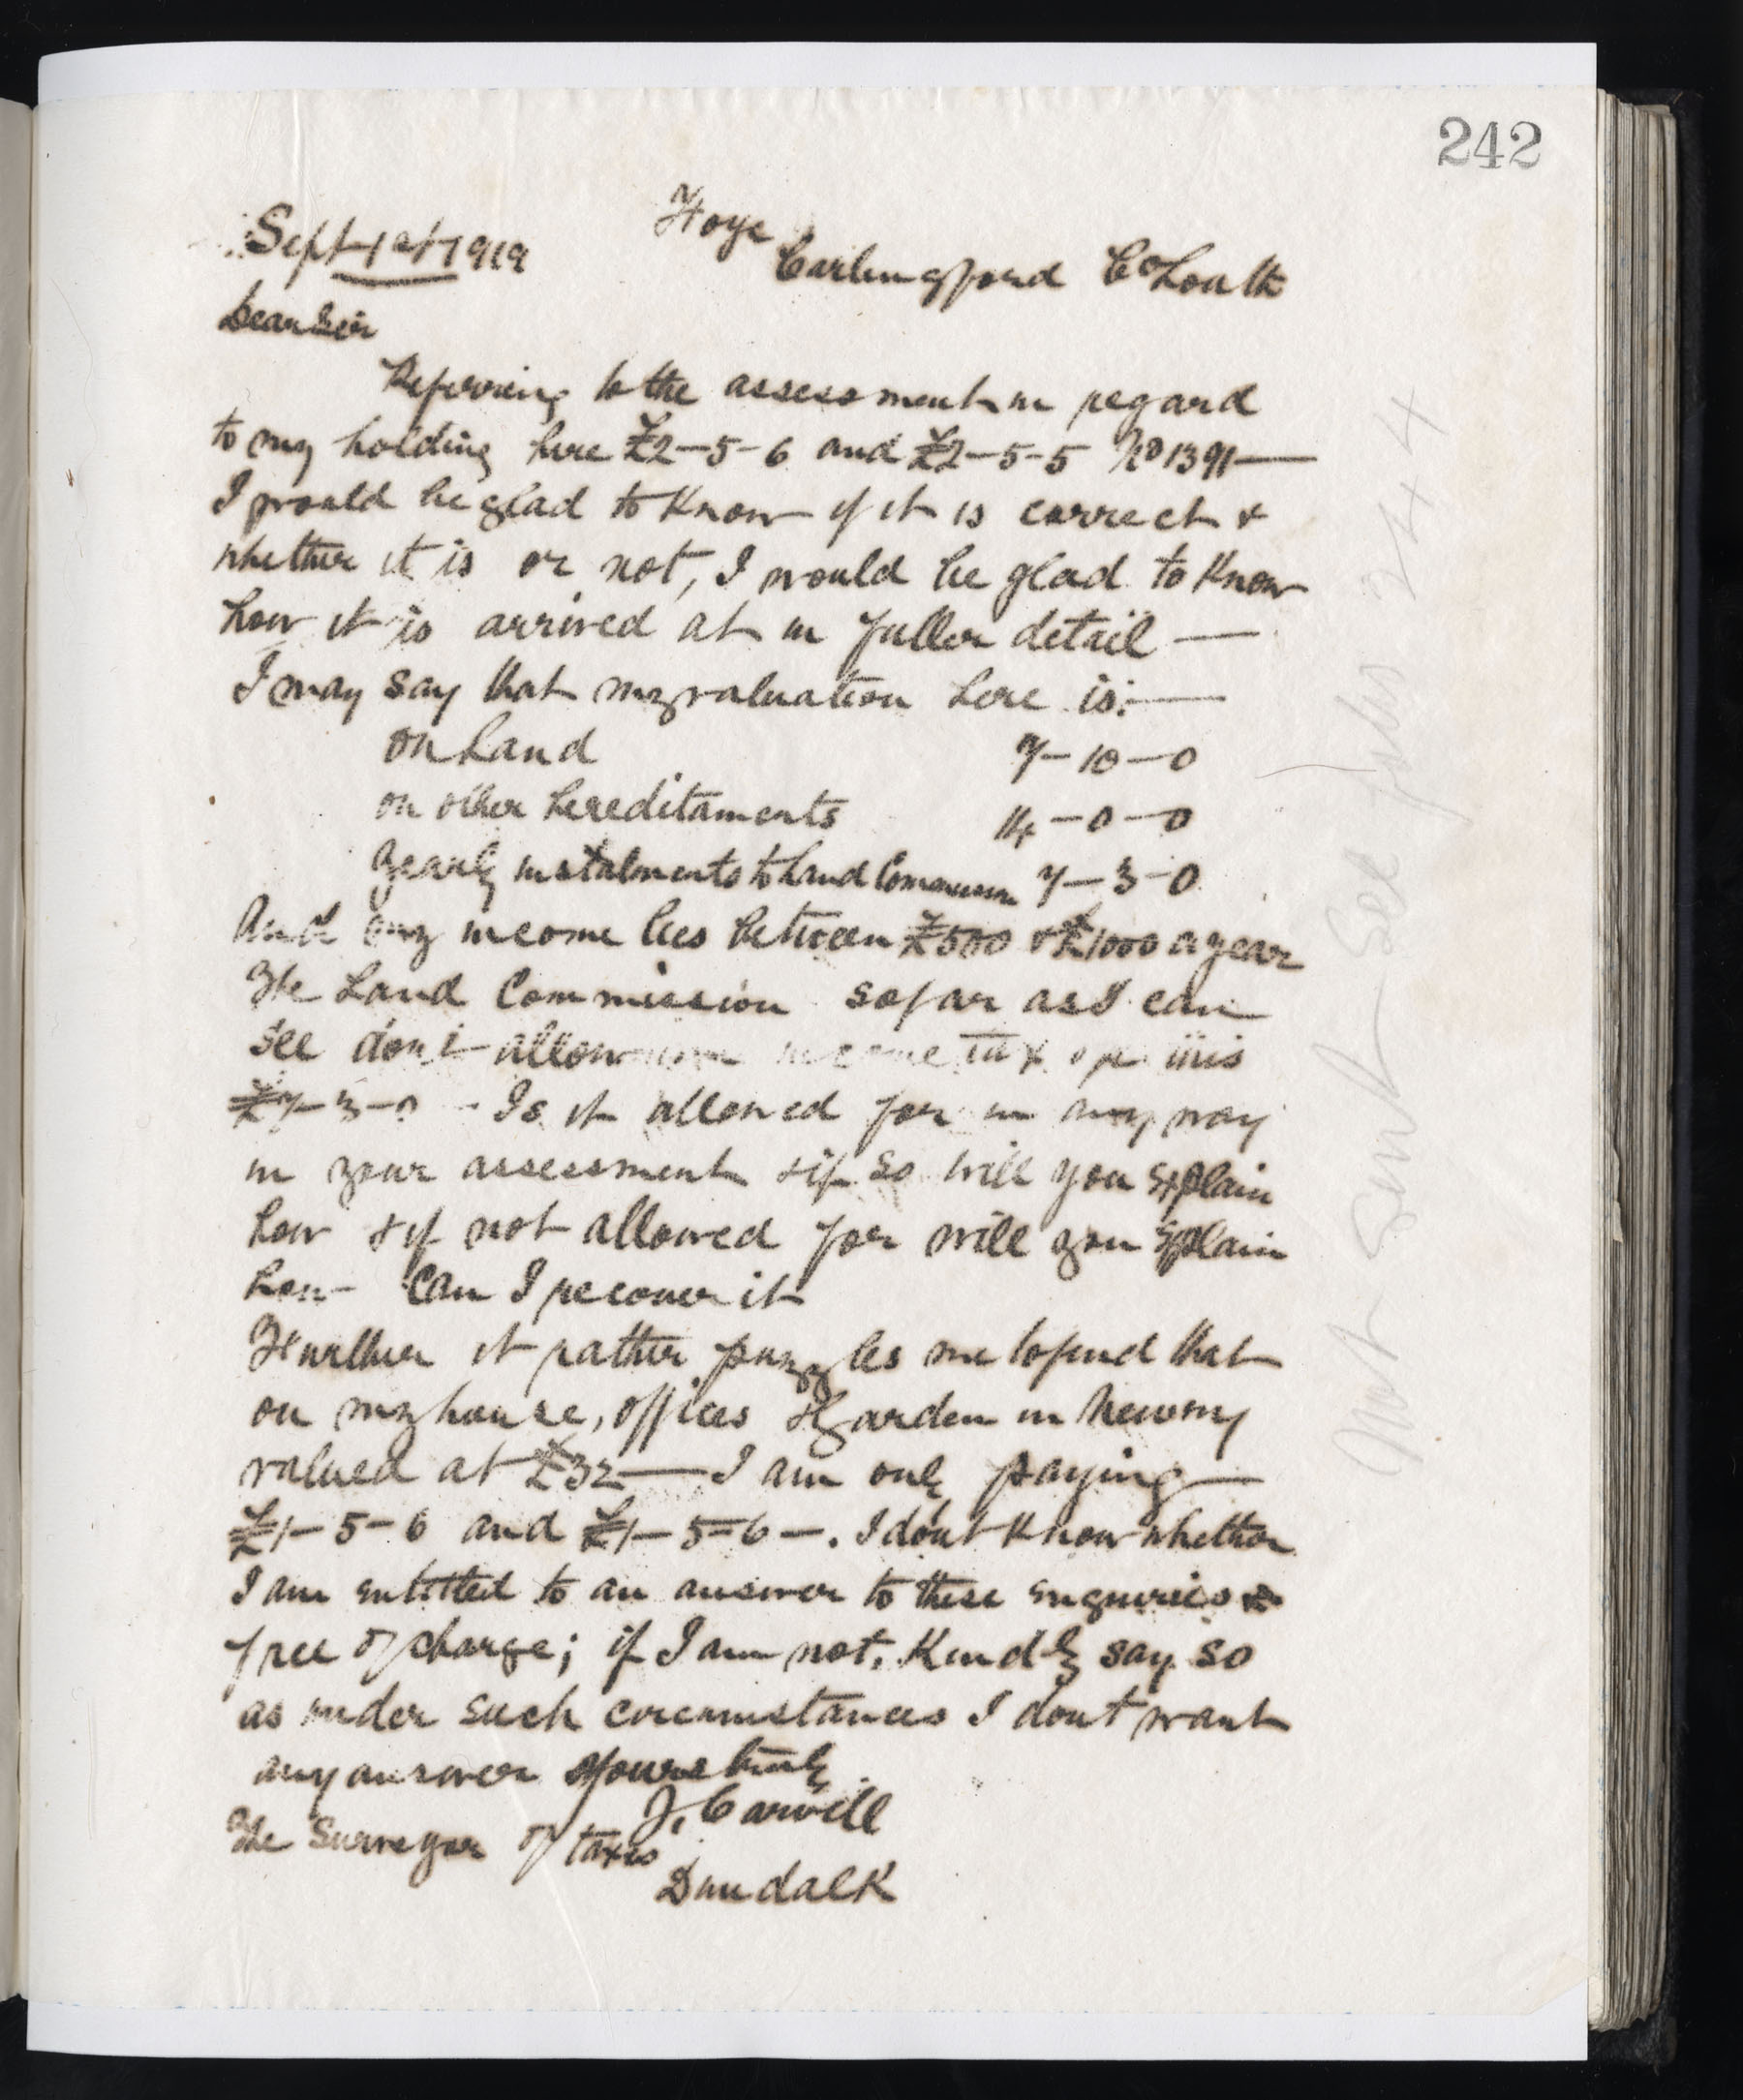 242
Sept 1st 1919
Foye
Carlingford Co Louth
Dear Sir
Referring to the assessment in regard
to my holding here £2-5-6 and £2-5-5 No 1391—
I would be glad to know if it is correct &
whether it is or not, I would be glad to know
how it is arrived at in fuller detail —
I may say that my valuation here is:—
on Land 7-10-0
on other hereditaments 14-0-0
yearly instalments to Land Commission 7-3-0
And my income lies between £500 & £1000 a year
The Land Commission so far as I can
see dont allow income tax on this
£7-3-0 - Is it allowed for in any way
in your assessment & if so will you explain
how & if not allowed for will you explain
how can I recover it
Further it rather puzzles me to find that
on my house, offices & garden in Newry
valued at £32 — I am only paying —
£1-5-6 and £1-5-6 —. I dont know whether
I am entitled to an answer to these enquiries
free of charge; if I am not, kindly say so
as under such circumstances I dont want
any answer Yours truly
J. Carvill
The Surveyor of taxes
Dundalk
Not Sent - See folio 244